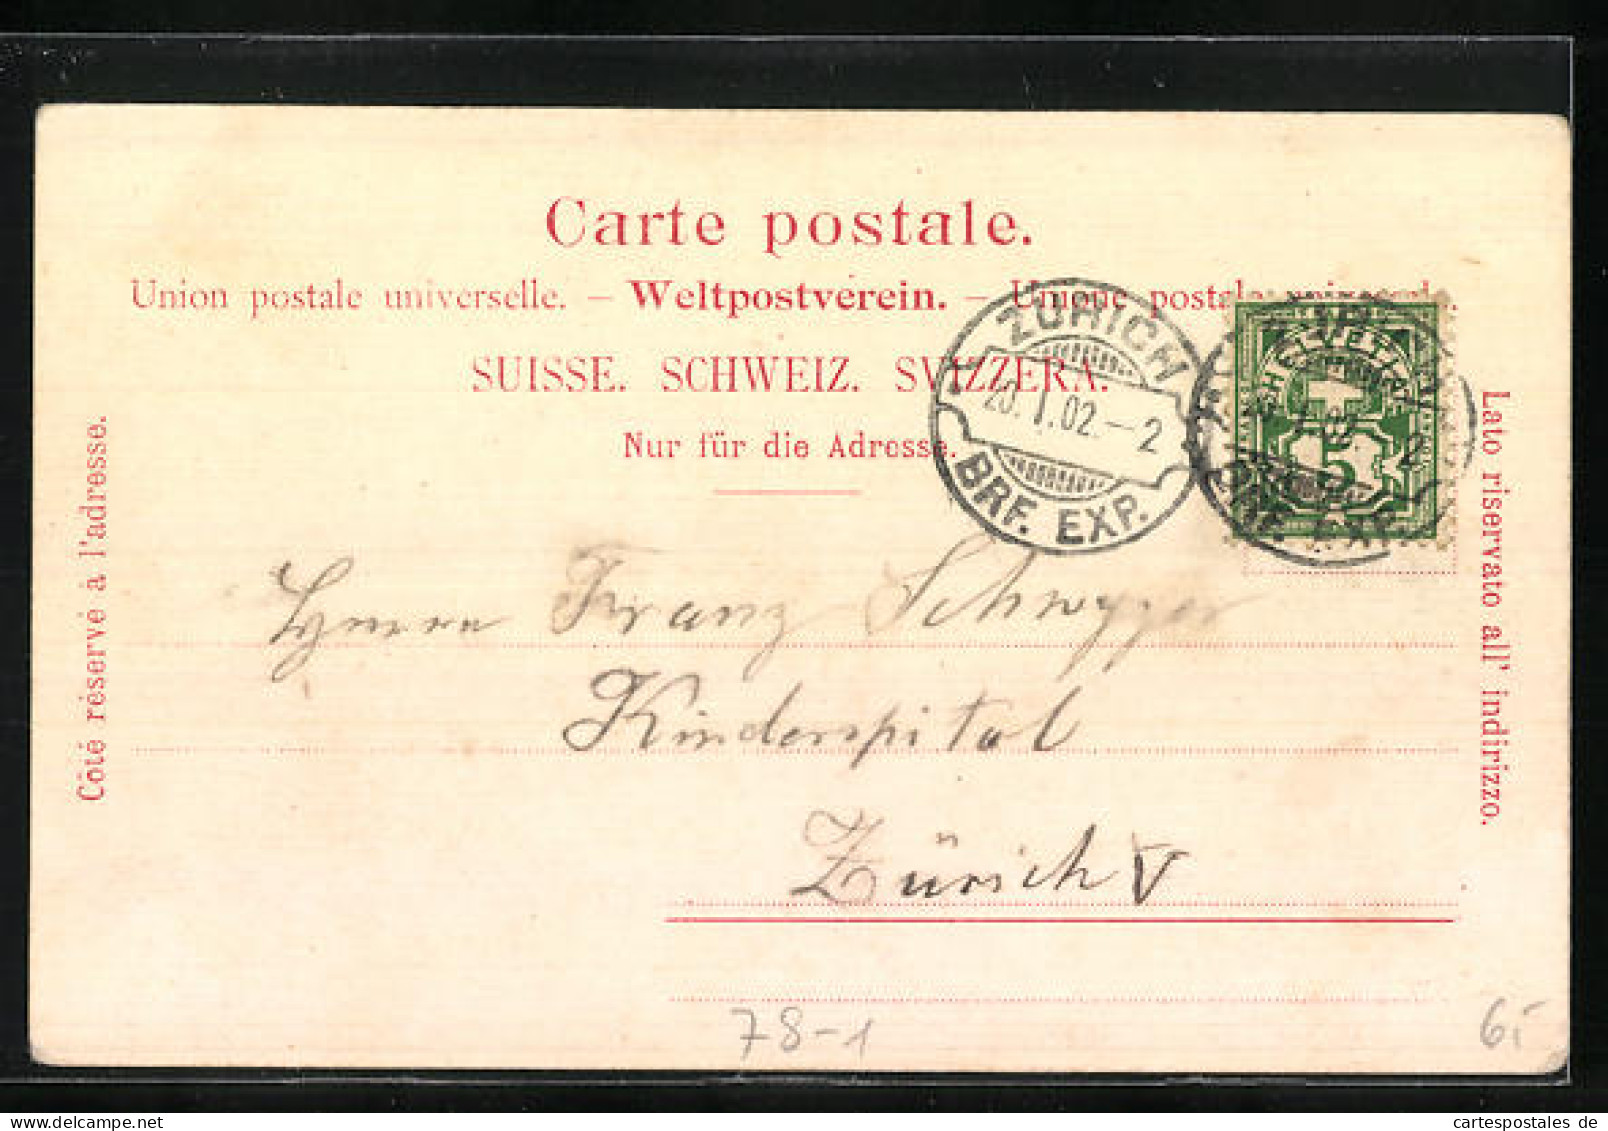 Carte postale.
Union postale universelle. – Weltpostverein. – Unione postale universale.
SUISSE. SCHWEIZ. SVIZZERA.
Nur für die Adresse.
Côté réservé à l'adresse.
Lato riservato all' indirizzo.
ZÜRICH
20. I. 02. – 2
BRF. EXP.
HELVETIA
5
BRF. EXP.
Herrn Franz Schwyzer
Kinderspital
Zürich V
78-1
6,-
cartespostales de